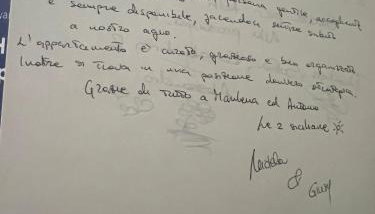 persona gentile, accogliente
e sempre disponibile, facendoci sentire subito
a nostro agio.
L'appartamento è curato, grazioso e ben organizzato
Inoltre si trova in una posizione davvero strategica.
Grazie di tutto a Marilena ed Antonio
Le 2 siciliane
&
Giusy